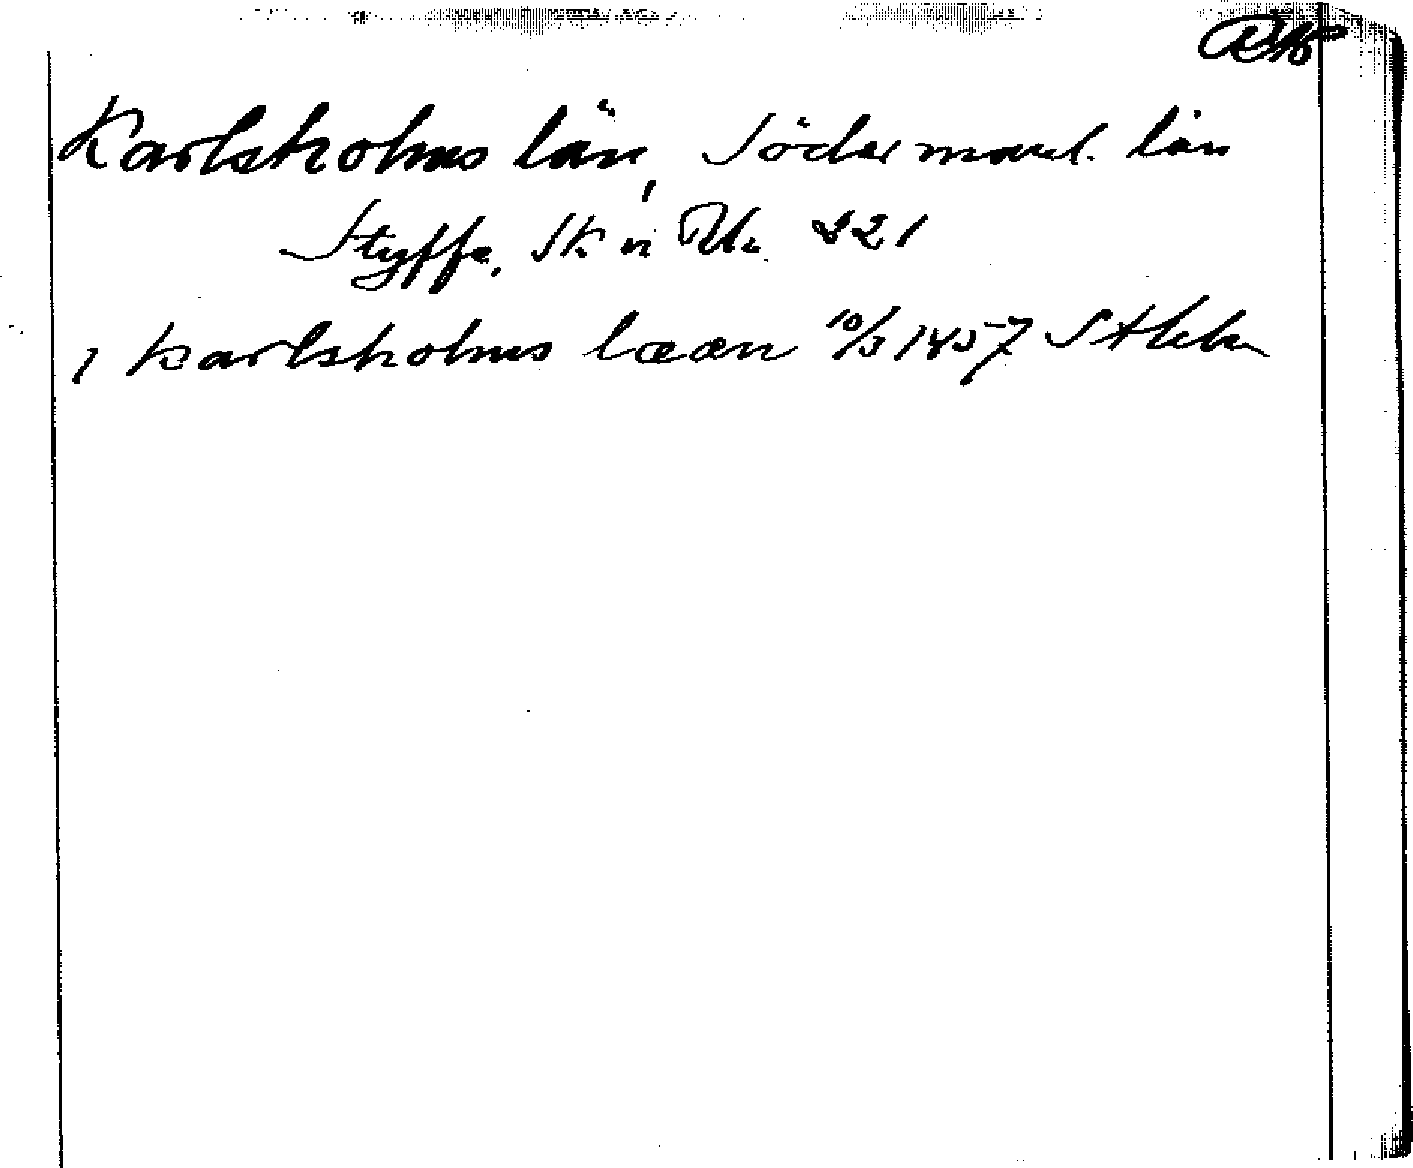 Karlsholms län, Södermanl. län
Styffe, Sk u Un 321
i Karlsholms lææn 10/3 1457 Sthlm